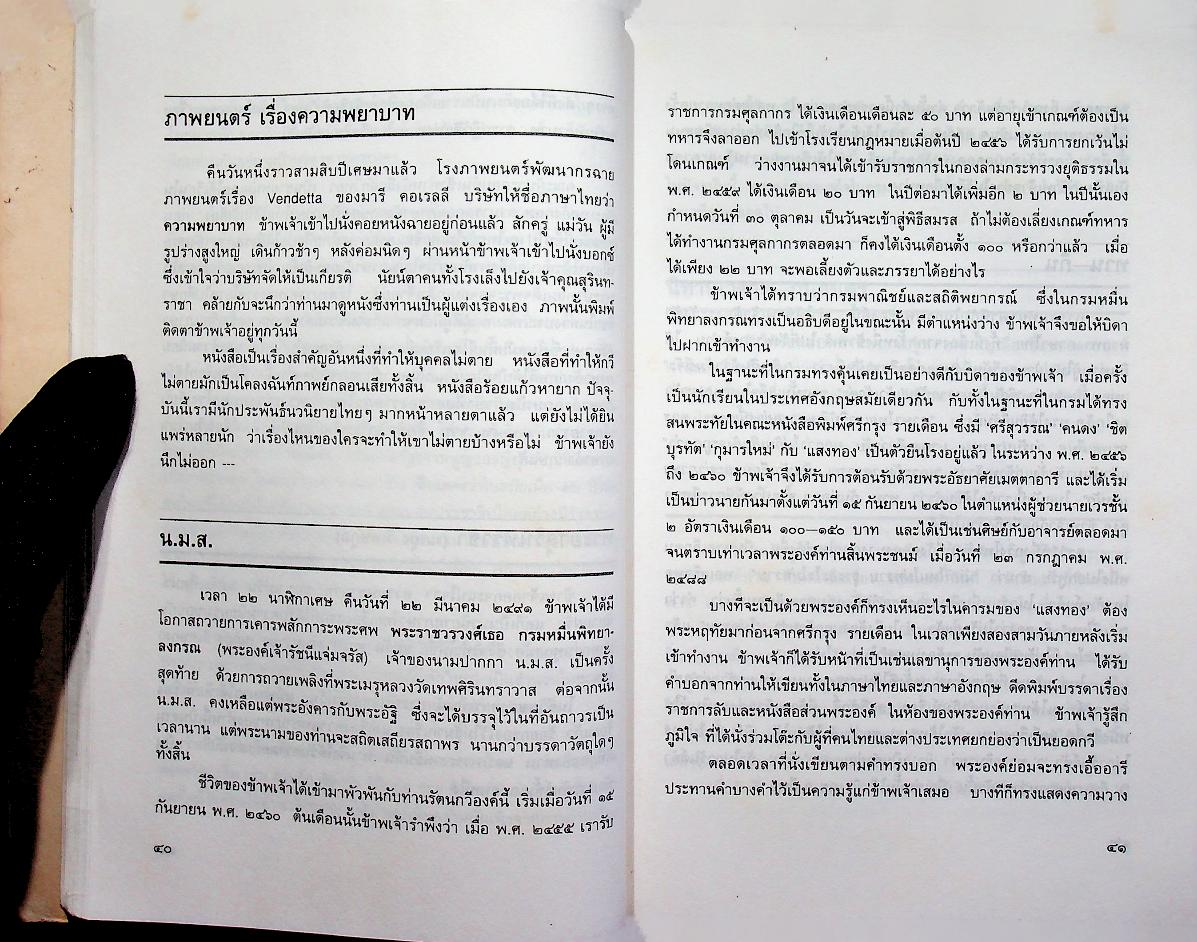 ภาพยนตร์ เรื่องความพยาบาท
คืนวันหนึ่งราวสามสิบปีเศษมาแล้ว โรงภาพยนตร์พัฒนากรฉาย
ภาพยนตร์เรื่อง Vendetta ของมารี คอเรลลี บริษัทให้ชื่อภาษาไทยว่า
ความพยาบาท ข้าพเจ้าเข้าไปนั่งคอยหนังฉายอยู่ก่อนแล้ว สักครู่ แม่วัน ผู้มี
รูปร่างสูงใหญ่ เดินก้าวช้าๆ หลังค่อมนิดๆ ผ่านหน้าข้าพเจ้าเข้าไปนั่งบอกซ์
ซึ่งเข้าใจว่าบริษัทจัดให้เป็นเกียรติ นัยน์ตาคนทั้งโรงเล็งไปยังเจ้าคุณสุรินท-
ราชา คล้ายกับจะนึกว่าท่านมาดูหนังซึ่งท่านเป็นผู้แต่งเรื่องเอง ภาพนั้นพิมพ์
ติดตาข้าพเจ้าอยู่ทุกวันนี้
หนังสือเป็นเรื่องสำคัญอันหนึ่งที่ทำให้บุคคลไม่ตาย หนังสือที่ทำให้กวี
ไม่ตายมักเป็นโคลงฉันท์กาพย์กลอนเสียทั้งสิ้น หนังสือร้อยแก้วหายาก ปัจจุ-
บันนี้เรามีนักประพันธ์นวนิยายไทยๆ มากหน้าหลายตาแล้ว แต่ยังไม่ได้ยิน
แพร่หลายนัก ว่าเรื่องไหนของใครจะทำให้เขาไม่ตายบ้างหรือไม่ ข้าพเจ้ายัง
นึกไม่ออก ---
น.ม.ส.
เวลา ๒๒ นาฬิกาเศษ คืนวันที่ ๒๒ มีนาคม ๒๔๙๑ ข้าพเจ้าได้มี
โอกาสถวายการเคารพสักการะพระศพ พระราชวรวงศ์เธอ กรมหมื่นพิทยา-
ลงกรณ (พระองค์เจ้ารัชนีแจ่มจรัส) เจ้าของนามปากกา น.ม.ส. เป็นครั้ง
สุดท้าย ด้วยการถวายเพลิงที่พระเมรุหลวงวัดเทพศิรินทราวาส ต่อจากนั้น
น.ม.ส. คงเหลือแต่พระอังคารกับพระอัฐิ ซึ่งจะได้บรรจุไว้ในที่อันถาวรเป็น
เวลานาน แต่พระนามของท่านจะสถิตเสถียรสถาพร นานกว่าบรรดาวัตถุใดๆ
ทั้งสิ้น
ชีวิตของข้าพเจ้าได้เข้ามาพัวพันกับท่านรัตนกวีองค์นี้ เริ่มเมื่อวันที่ ๑๕
กันยายน พ.ศ. ๒๔๖๐ ต้นเดือนนั้นข้าพเจ้ารำพึงว่า เมื่อ พ.ศ. ๒๔๕๕ เรารับ
๔๐
ราชการกรมศุลกากร ได้เงินเดือนเดือนละ ๕๐ บาท แต่อายุเข้าเกณฑ์ต้องเป็น
ทหารจึงลาออก ไปเข้าโรงเรียนกฎหมายเมื่อต้นปี ๒๔๕๖ ได้รับการยกเว้นไม่
โดนเกณฑ์ ว่างงานมาจนได้เข้ารับราชการในกองล่ามกระทรวงยุติธรรมใน
พ.ศ. ๒๔๕๙ ได้เงินเดือน ๒๐ บาท ในปีต่อมาได้เพิ่มอีก ๒ บาท ในปีนั้นเอง
กำหนดวันที่ ๓๐ ตุลาคม เป็นวันจะเข้าสู่พิธีสมรส ถ้าไม่ต้องเลี่ยงเกณฑ์ทหาร
ได้ทำงานกรมศุลกากรตลอดมา ก็คงได้เงินเดือนตั้ง ๑๐๐ หรือกว่าแล้ว เมื่อ
ได้เพียง ๒๒ บาท จะพอเลี้ยงตัวและภรรยาได้อย่างไร
ข้าพเจ้าได้ทราบว่ากรมพาณิชย์และสถิติพยากรณ์ ซึ่งในกรมหมื่น
พิทยาลงกรณทรงเป็นอธิบดีอยู่ในขณะนั้น มีตำแหน่งว่าง ข้าพเจ้าจึงขอให้บิดา
ไปฝากเข้าทำงาน
ในฐานะที่ในกรมทรงคุ้นเคยเป็นอย่างดีกับบิดาของข้าพเจ้า เมื่อครั้ง
เป็นนักเรียนในประเทศอังกฤษสมัยเดียวกัน กับทั้งในฐานะที่ในกรมได้ทรง
สนพระทัยในคณะหนังสือพิมพ์ศรีกรุง รายเดือน ซึ่งมี ‘ศรีสุวรรณ’ ‘คนดง’ ‘ชิต
บุรทัต’ ‘กุมารใหม่’ กับ ‘แสงทอง’ เป็นตัวยืนโรงอยู่แล้ว ในระหว่าง พ.ศ. ๒๔๕๖
ถึง ๒๔๖๐ ข้าพเจ้าจึงได้รับการต้อนรับด้วยพระอัธยาศัยเมตตาอารี และได้เริ่ม
เป็นบ่าวนายกันมาตั้งแต่วันที่ ๑๕ กันยายน ๒๔๖๐ ในตำแหน่งผู้ช่วยนายเวรชั้น
๒ อัตราเงินเดือน ๑๐๐—๑๕๐ บาท และได้เป็นเช่นศิษย์กับอาจารย์ตลอดมา
จนตราบเท่าเวลาพระองค์ท่านสิ้นพระชนม์ เมื่อวันที่ ๒๓ กรกฎาคม พ.ศ.
๒๔๘๘
บางทีจะเป็นด้วยพระองค์ก็ทรงเห็นอะไรในคารมของ ‘แสงทอง’ ต้อง
พระหฤทัยมาก่อนจากศรีกรุง รายเดือน ในเวลาเพียงสองสามวันภายหลังเริ่ม
เข้าทำงาน ข้าพเจ้าก็ได้รับหน้าที่เป็นเช่นเลขานุการของพระองค์ท่าน ได้รับ
คำบอกจากท่านให้เขียนทั้งในภาษาไทยและภาษาอังกฤษ ดีดพิมพ์บรรดาเรื่อง
ราชการลับและหนังสือส่วนพระองค์ ในห้องของพระองค์ท่าน ข้าพเจ้ารู้สึก
ภูมิใจ ที่ได้นั่งร่วมโต๊ะกับผู้ที่คนไทยและต่างประเทศยกย่องว่าเป็นยอดกวี
ตลอดเวลาที่นั่งเขียนตามคำทรงบอก พระองค์ย่อมจะทรงเอื้ออารี
ประทานคำบางคำไว้เป็นความรู้แก่ข้าพเจ้าเสมอ บางทีก็ทรงแสดงความวาง
๔๑